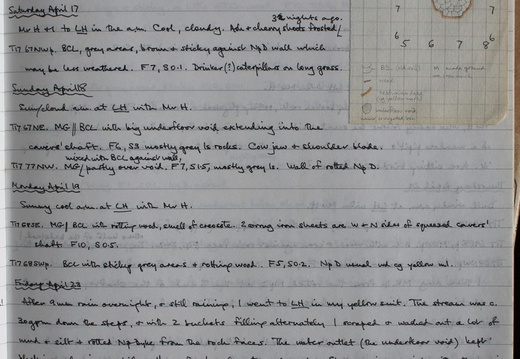 Saturday April 17
3 nights ago.
Mr H + I to LH in the a.m. Cool, cloudy. Ash & cherry shoots frosted
T17 67NWp. BCL, grey areas, brown & sticky against NpD wall which
may be less weathered. F7, S0.1. Drinker(?) caterpillars on long grass.
Sunday April 18
Sun/cloud a.m. at LH with Mr H.
T17 67NE. MG // BCL with big underfloor void extending into the
cavers' shaft. F6, S3 mostly grey ls rocks. Cow jaw & shoulder blade.
mixed with BCL against wall,
T17 77NW. MG/ partly over void. F7, S1.5, mostly grey ls. Wall of rotted NpD.
Monday April 19
Sunny cool a.m. at LH with Mr H.
T17 68SE. MG/ BCL with rotting wood, smell of creosote. 2 corrug iron sheets are W & N sides of squared cavers'
shaft F10, S0.5.
T17 68SWp. BCL with sticky grey areas & rotting wood. F5, S0.2. NpD usual wd cg yellow wl.
Friday April 23
After 9mm rain overnight, & still raining, I went to LH in my yellow suit. The stream was c.
30gpm down the steps, & with 2 buckets filling alternately I scraped & washed out a lot of
mud & silt & rotted NpD from the rock faces. The water outlet (the underfloor void) kept
7
7
6
6
5
6
7
8